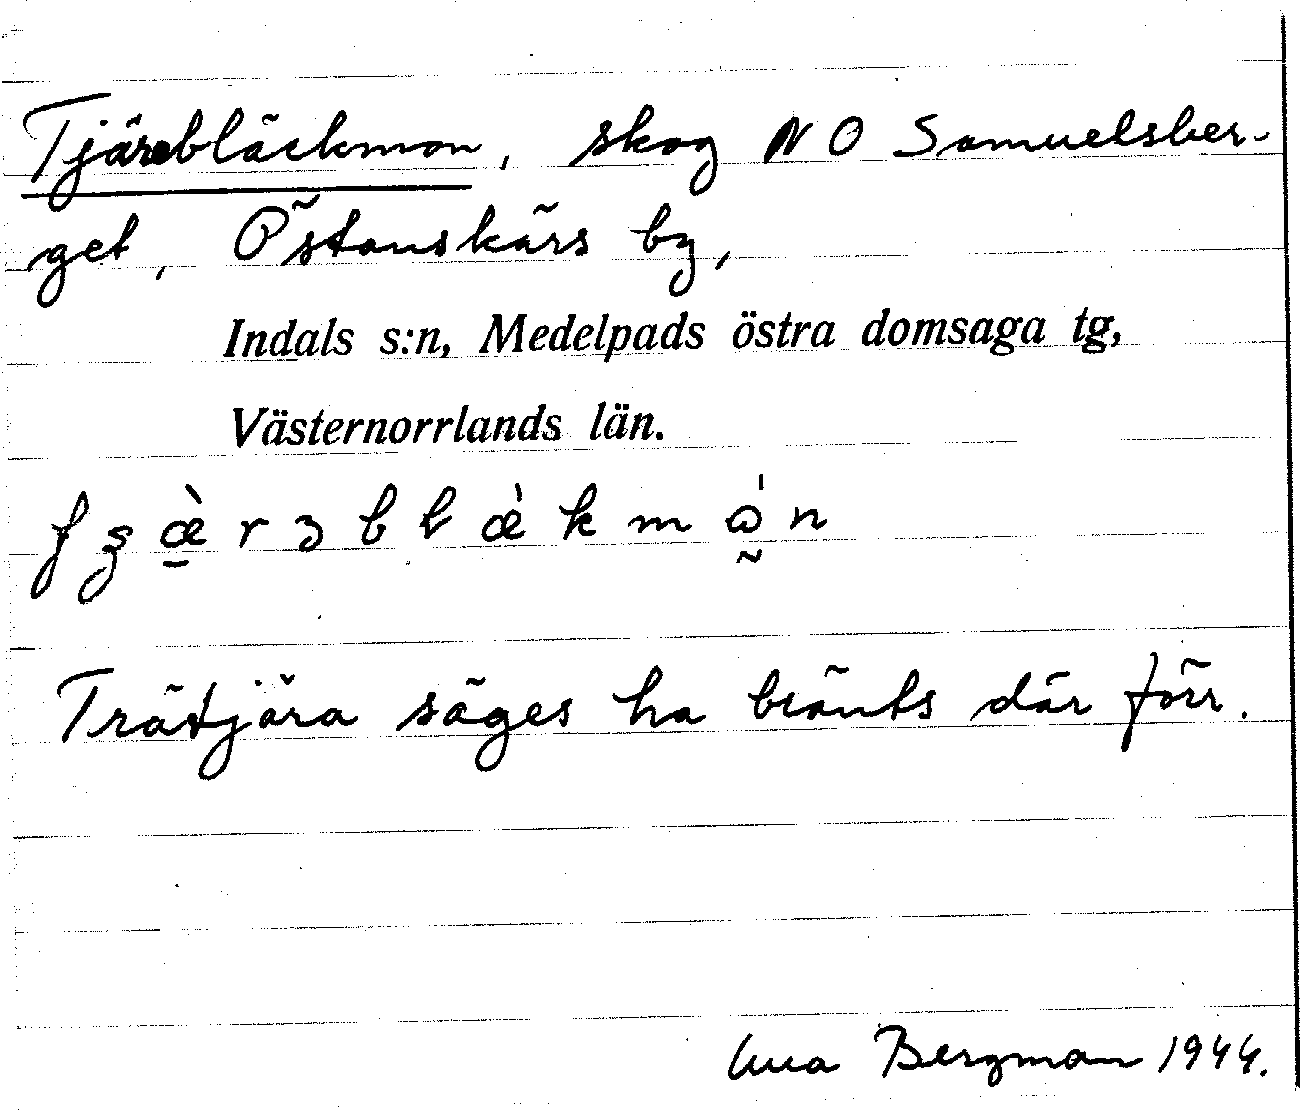 Tjärebläckmon, skog NO Samuelsber-
get, Östanskärs by,
Indals s:n, Medelpads östra domsaga tg,
Västernorrlands län.
Trätjära säges ha bränts där förr.
Anna Bergman 1944.